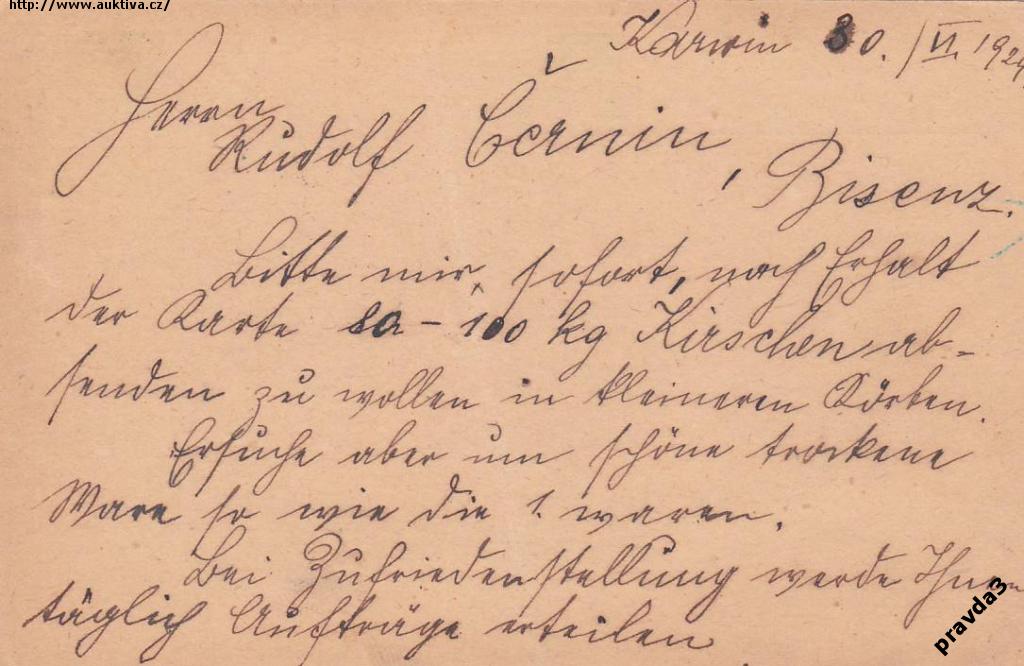 http://www.auktiva.cz/
Karwin 30./VI. 192
Herrn
Rudolf Černin, Bisenz.
Bitte mir, sofort, nach Erhalt
der Karte 80-100 kg Kirschen ab-
senden zu wollen in kleineren Körben.
Ersuche aber um schöne trockene
Ware so wie die 1. waren.
Bei Zufriedenstellung werde Ihnen
täglich Aufträge erteilen
pravda3